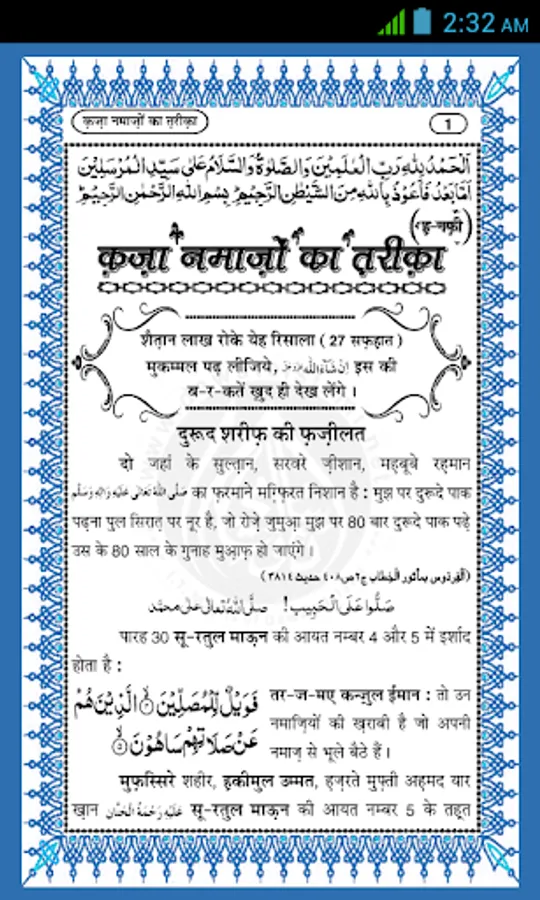 2:32 AM
क़ज़ा नमाज़ों का त़रीक़ा
1
اَلْحَمْدُ لِلّٰهِ رَبِّ الْعٰلَمِيْنَ وَالصَّلٰوةُ وَالسَّلَامُ عَلٰى سَيِّدِ الْمُرْسَلِيْنَ
اَمَّا بَعْدُ فَاَعُوْذُ بِاللّٰهِ مِنَ الشَّيْطٰنِ الرَّجِيْمِ ؕ بِسْمِ اللّٰهِ الرَّحْمٰنِ الرَّحِيْمِ ؕ
(ह़-नफ़ी)
क़ज़ा नमाज़ों का त़रीक़ा
शैत़ान लाख रोके येह रिसाला ( 27 सफ़ह़ात )
मुकम्मल पढ़ लीजिये, اِنْ شَآءَاللّٰه इस की
ब-र-कतें ख़ुद ही देख लेंगे ।
दुरूद शरीफ़ की फ़ज़ीलत
दो जहां के सुल्त़ान, सरवरे ज़ीशान, मह़बूबे रह़मान
صَلَّى اللّٰهُ تَعَالٰى عَلَيْهِ وَاٰلِهٖ وَسَلَّم का फ़रमाने मग़्फ़िरत निशान है : मुझ पर दुरूदे पाक
पढ़ना पुल सिरात़ पर नूर है, जो रोज़े जुमुआ़ मुझ पर 80 बार दुरूदे पाक पढ़े
उस के 80 साल के गुनाह मुआ़फ़ हो जाएंगे ।
(اَلْفِردَوس بمأثور الْخِطاب ج٢ ص٤٠٨ حديث ٣٨١٤)
صَلُّوْا عَلَى الْحَبِيْب! صلَّى اللّٰهُ تعالٰى على محمَّد
पारह 30 सू-रतुल माऊ़न की आयत नम्बर 4 और 5 में इर्शाद
होता है :
فَوَيْلٌ لِّلْمُصَلِّيْنَ ۙ﴿۴﴾ الَّذِيْنَ هُمْ
तर-ज-मए कन्ज़ुल ईमान : तो उन
नमाज़ियों की ख़राबी है जो अपनी
عَنْ صَلَاتِهِمْ سَاهُوْنَ ۙ﴿۵﴾
नमाज़ से भूले बैठे हैं ।
मुफ़स्सिरे शहीर, ह़कीमुल उम्मत, ह़ज़रते मुफ़्ती अह़मद यार
ख़ान عَلَيْهِ رَحْمَةُ الْحَنَّان सू-रतुल माऊ़न की आयत नम्बर 5 के तह़्त